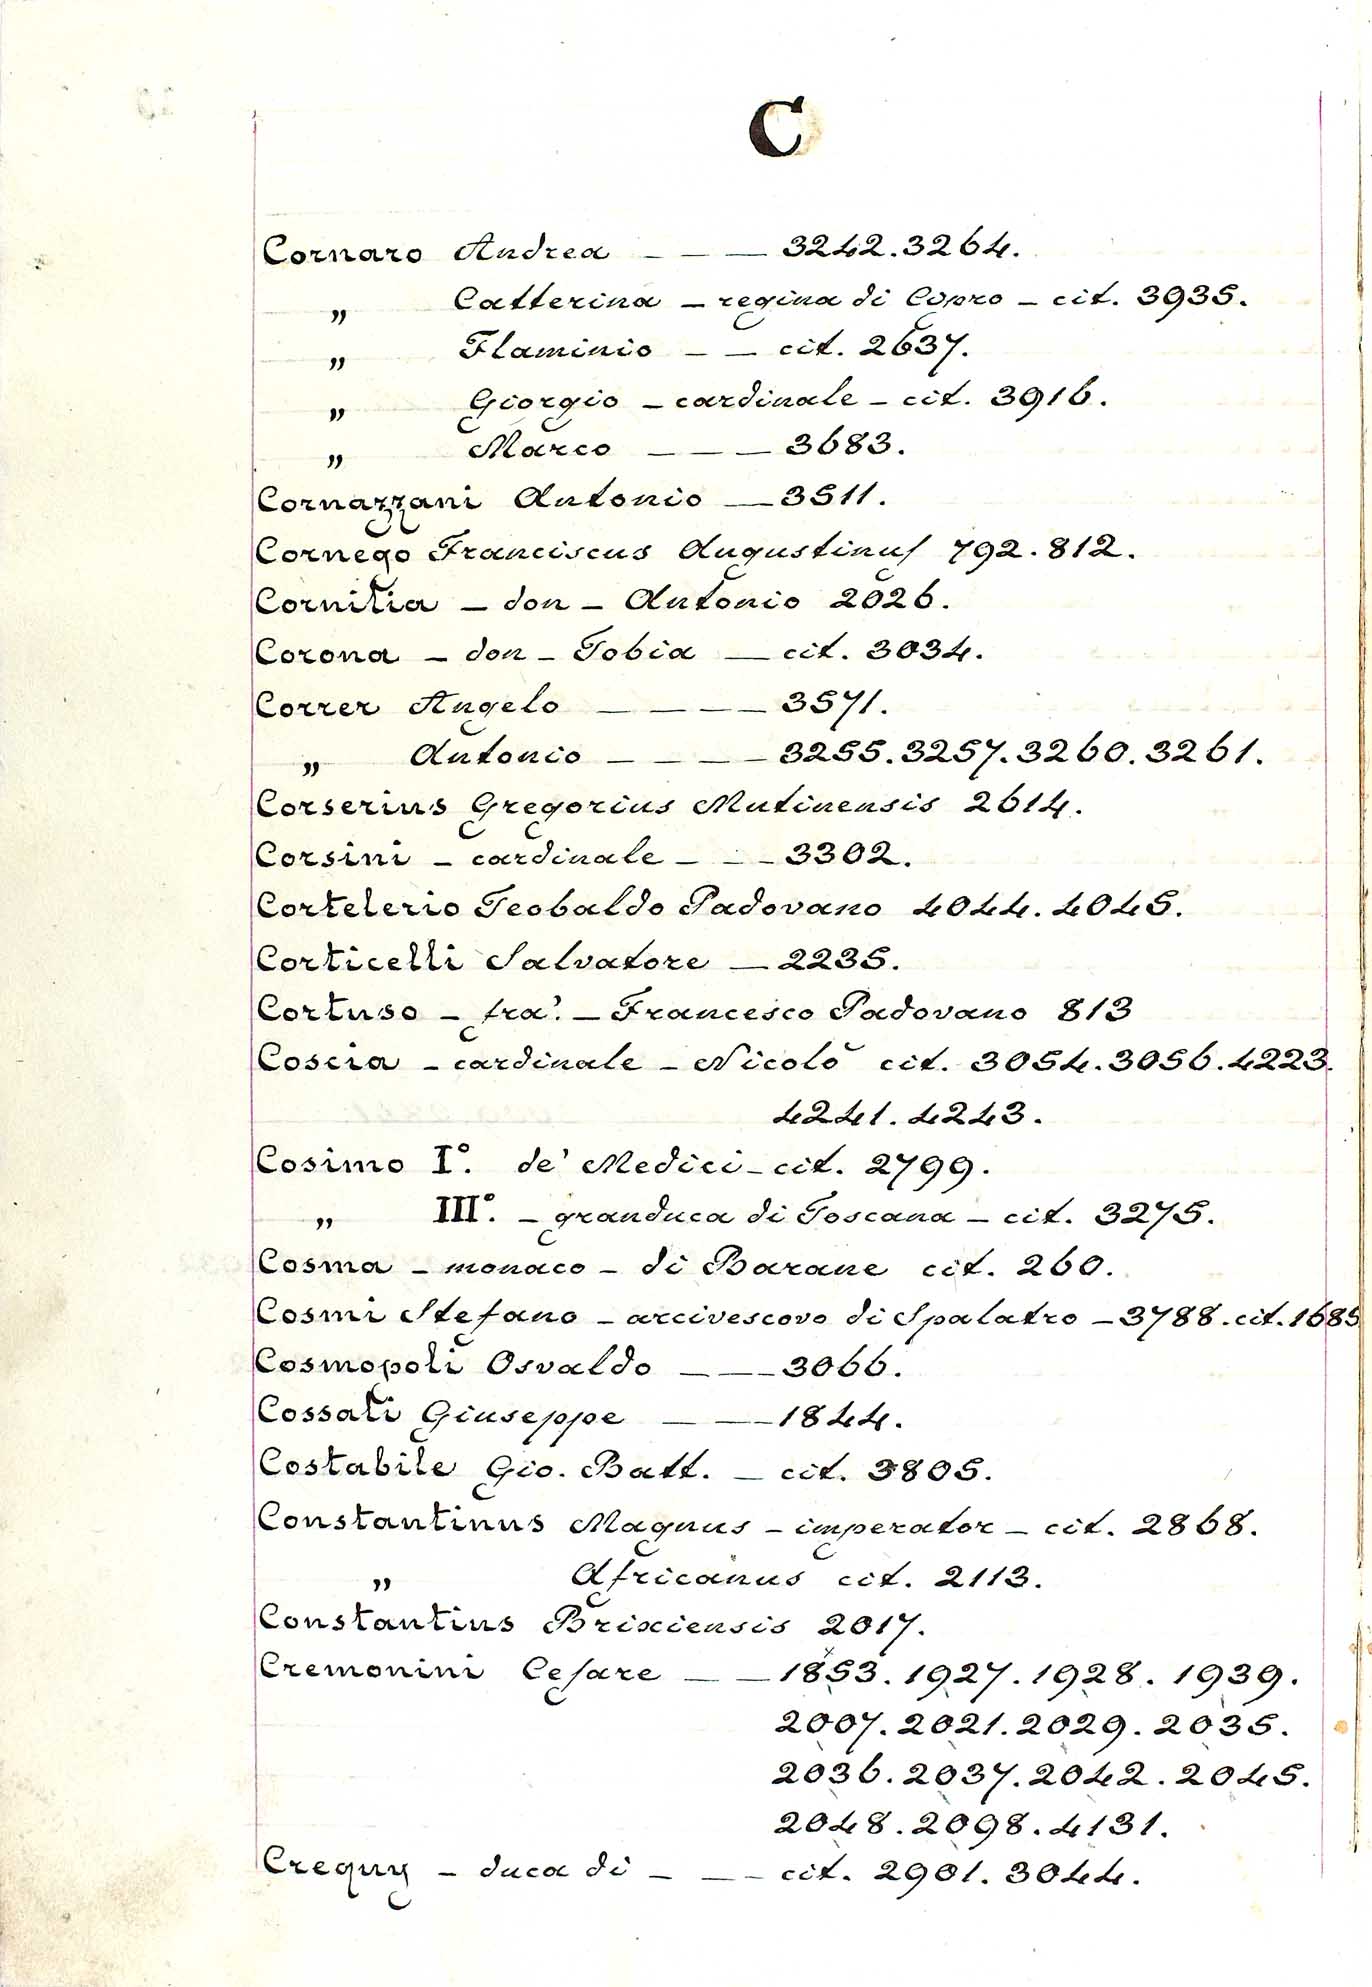 C
Cornaro Andrea _ _ _ 3242.3264.
„ Catterina _ regina di Cipro _ cit. 3935.
„ Flaminio _ _ cit. 2637.
„ Giorgio _ cardinale _ cit. 3916.
„ Marco _ _ _ 3683.
Cornazzani Antonio _ 3511.
Cornego Franciscus Augustinus 792.812.
Cornitia _ don _ Antonio 2026.
Corona _ don _ Tobia _ cit. 3034.
Correr Angelo _ _ _ _ 3571.
„ Antonio _ _ _ _ 3255.3257.3260.3261.
Corserius Gregorius Mutinensis 2614.
Corsini _ cardinale _ _ _ 3302.
Cortelerio Teobaldo Padovano 4044.4045.
Corticelli Salvatore _ 2235.
Cortuso _ fra'. _ Francesco Padovano 813
Coscia _ cardinale _ Nicolò cit. 3054.3056.4223.
4241.4243.
Cosimo I°. de' Medici _ cit. 2799.
„ III°. _ granduca di Toscana _ cit. 3275.
Cosma _ monaco _ di Barane cit. 260.
Cosmi Stefano _ arcivescovo di Spalatro _ 3788. cit. 1685
Cosmopoli Osvaldo _ _ _ 3066.
Cossali Giuseppe _ _ _ 1844.
Costabile Gio. Batt. _ cit. 3805.
Constantinus Magnus _ imperator _ cit. 2868.
„ Africanus cit. 2113.
Constantius Brixiensis 2017.
Cremonini Cesare _ _ _ 1853.1927.1928.1939.
2007.2021.2029.2035.
2036.2037.2042.2045.
2048.2098.4131.
Crequy _ duca di _ _ _ cit. 2901.3044.